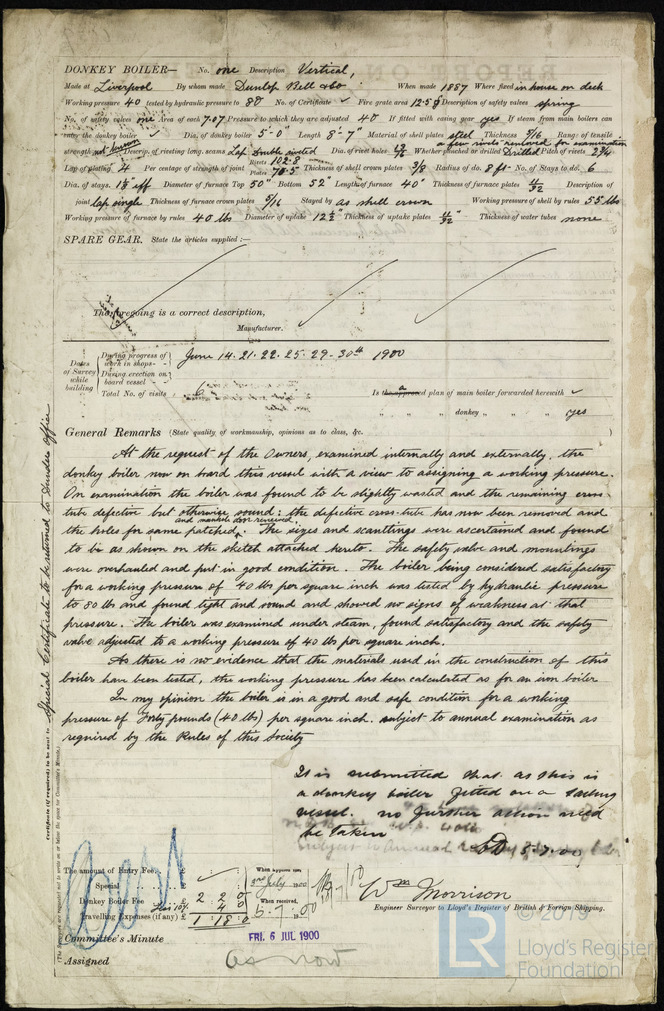 DONKEY BOILER— No. one Description Vertical,
Made at Liverpool By whom made Dunlop Bell & Co When made 1887 Where fixed in house on deck
Working pressure 40 tested by hydraulic pressure to 80 No. of Certificate ✓ Fire grate area 12.5 Description of safety valves spring
No. of safety valves one Area of each 7.07 Pressure to which they are adjusted 40 If fitted with easing gear yes If steam from main boilers can
enter the donkey boiler ✓ Dia. of donkey boiler 5'-0" Length 8'-7" Material of shell plates steel Thickness 9/16 Range of tensile
a few rivets removed for examination
strength not known Descrip. of riveting long. seams Lap double riveted Dia. of rivet holes Whether punched or drilled Drilled Pitch of rivets 2 3/4
Lap of plating 4 Per centage of strength of joint Rivets 102.8 Plates 70.5 Thickness of shell crown plates 3/8 Radius of do. 8 ft No. of Stays to do. 6
Dia. of stays. 1 1/8" eff Diameter of furnace Top 50" Bottom 52" Length of furnace 40" Thickness of furnace plates 11/32 Description of
joint lap single Thickness of furnace crown plates 9/16 Stayed by as shell crown Working pressure of shell by rules 55 lbs
Working pressure of furnace by rules 40 lbs Diameter of uptake 12 1/2" Thickness of uptake plates 11/32" Thickness of water tubes none
SPARE GEAR. State the articles supplied:—
The foregoing is a correct description,
Manufacturer.
Dates of Survey while building
During progress of work in shops-- June 14. 21. 22. 25. 29 - 30th 1900
During erection on board vessel---
Total No. of visits 6 Is the approved a plan of main boiler forwarded herewith ✓
" " " donkey " " " yes
General Remarks (State quality of workmanship, opinions as to class, &c.
At the request of the Owners, examined internally and externally, the
donkey boiler now on board this vessel with a view to assigning a working pressure.
On examination the boiler was found to be slightly wasted and the remaining cross
tube defective but otherwise sound: the defective cross-tube has now been removed and
and manhole door renewed
the holes for same patched. The sizes and scantlings were ascertained and found
to be as shown on the sketch attached hereto. The safety valve and mountings
were overhauled and put in good condition. The boiler being considered satisfactory
for a working pressure of 40 lbs per square inch was tested by hydraulic pressure
to 80 lbs and found tight and sound and showed no signs of weakness at that
pressure. The boiler was examined under steam, found satisfactory and the safety
valve adjusted to a working pressure of 40 lbs per square inch.
As there is no evidence that the materials used in the construction of this
boiler have been tested, the working pressure has been calculated as for an iron boiler
In my opinion the boiler is in a good and safe condition for a working
pressure of Forty pounds (40 lbs) per square inch. subject to annual examination as
required by the Rules of this Society
Certificate (if required) to be sent to Special Certificate to be returned to Dundee Office
(The Surveyors are requested not to write on or below the space for Committee's Minute.)
It is submitted that as this is
a donkey boiler fitted on a sailing
vessel. no further action need
be taken
5.7.00
The amount of Entry Fee.. £ ✓ When applied for,
Special £ 3rd July 1900
Donkey Boiler Fee £ 2. 2. 0 When received,
less 10% 4. 0
Travelling Expenses (if any) £ 1. 18. 0 5.7.1900
Wm Morrison
Engineer Surveyor to Lloyd's Register of British & Foreign Shipping.
Committee's Minute FRI. 6 JUL 1900
Assigned as now
© 2019
LR
Lloyd's Register
Foundation